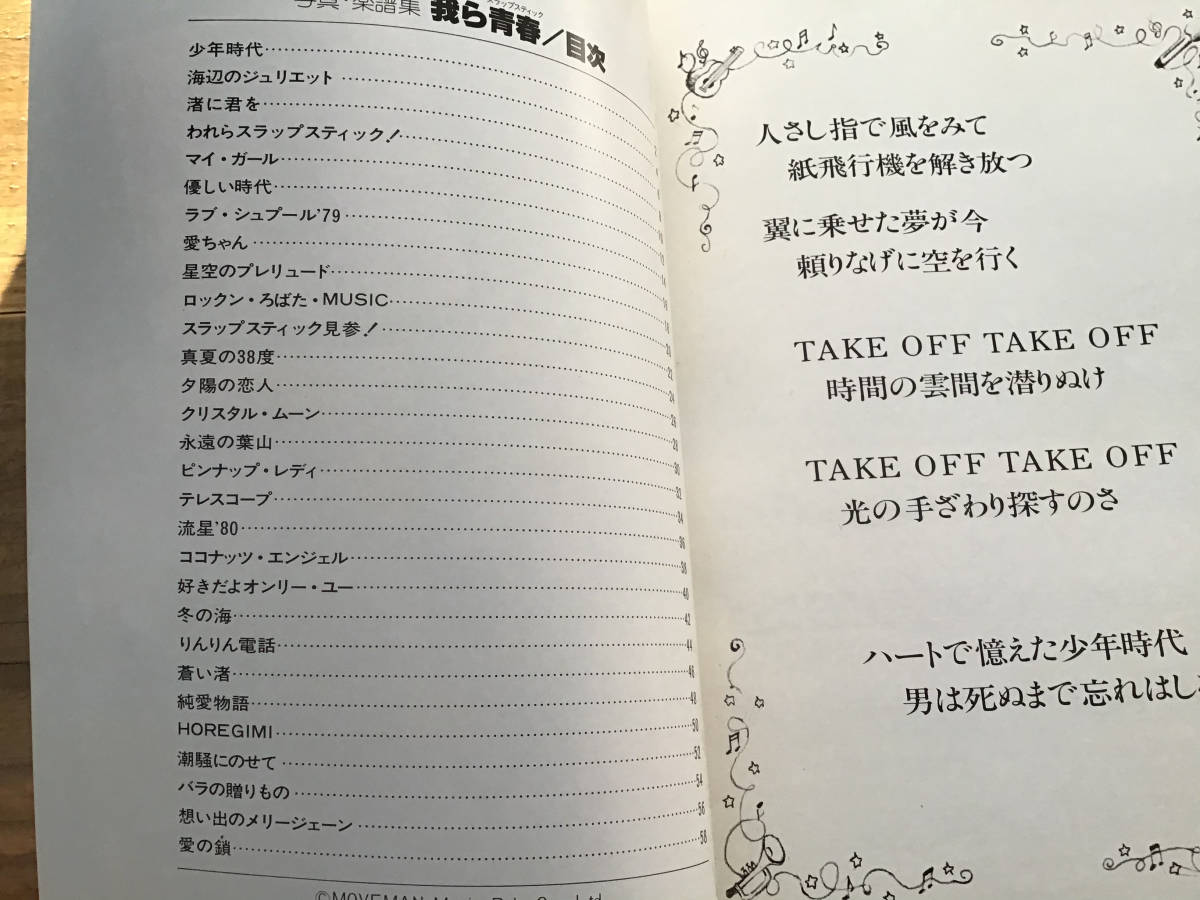 スラップスティック
写真・楽譜集 我ら青春／目次
少年時代
海辺のジュリエット
渚に君を
われらスラップスティック！
マイ・ガール
優しい時代 8
ラブ・シュプール'79 10
愛ちゃん 12
星空のプレリュード 14
ロックン・ろばた・MUSIC 16
スラップスティック見参！ 18
真夏の38度 20
夕陽の恋人 22
クリスタル・ムーン 24
永遠の葉山 26
ピンナップ・レディ 28
テレスコープ 30
流星'80 32
ココナッツ・エンジェル 34
好きだよオンリー・ユー 36
冬の海 38
りんりん電話 40
蒼い渚 42
純愛物語 44
HOREGIMI 46
潮騒にのせて 48
バラの贈りもの 50
想い出のメリージェーン 52
愛の鎖 54
56
58
人さし指で風をみて
紙飛行機を解き放つ
翼に乗せた夢が今
頼りなげに空を行く
TAKE OFF TAKE OFF
時間の雲間を潜りぬけ
TAKE OFF TAKE OFF
光の手ざわり探すのさ
ハートで憶えた少年時代
男は死ぬまで忘れはし